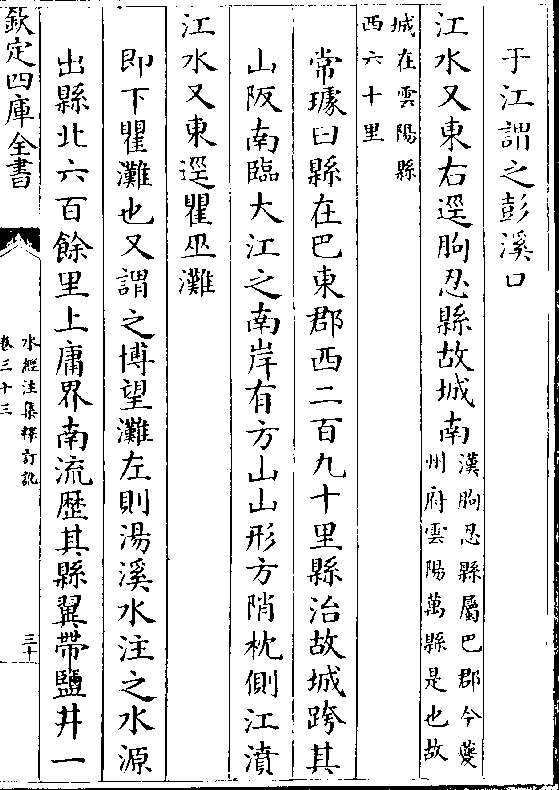 于江謂之彭溪口
江水又東右逕朐忍縣故城南漢朐忍縣屬巴郡今夔
州府雲陽萬縣是也故
城在雲陽縣
西六十里
常璩曰縣在巴東郡西二百九十里縣治故城跨其
山阪南臨大江之南岸有方山山形方陗枕側江濆
江水又東逕瞿巫灘
即下瞿灘也又謂之博望灘左則湯溪水注之水源
出縣北六百餘里上庸界南流歷其縣翼帶鹽井一
欽定四庫全書
水經注集釋訂訛
卷三十三
三十